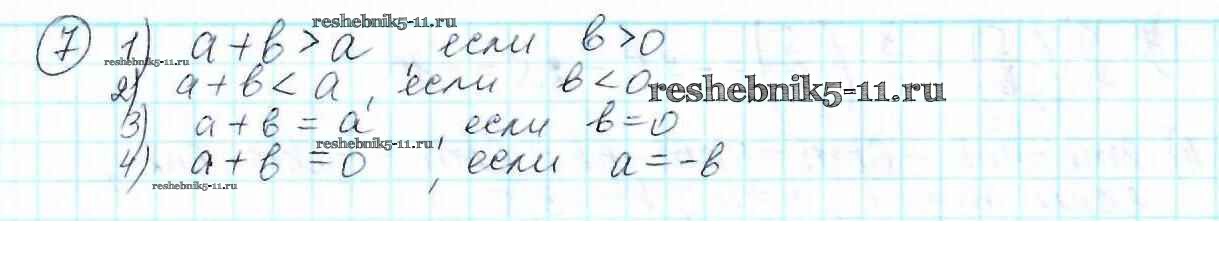 reshebnik5-11.ru
7 1) a + b > a, если b > 0
reshebnik5-11.ru
2) a + b < a, если b < 0
reshebnik5-11.ru
3) a + b = a, если b = 0
reshebnik5-11.ru
4) a + b = 0, если a = -b
reshebnik5-11.ru